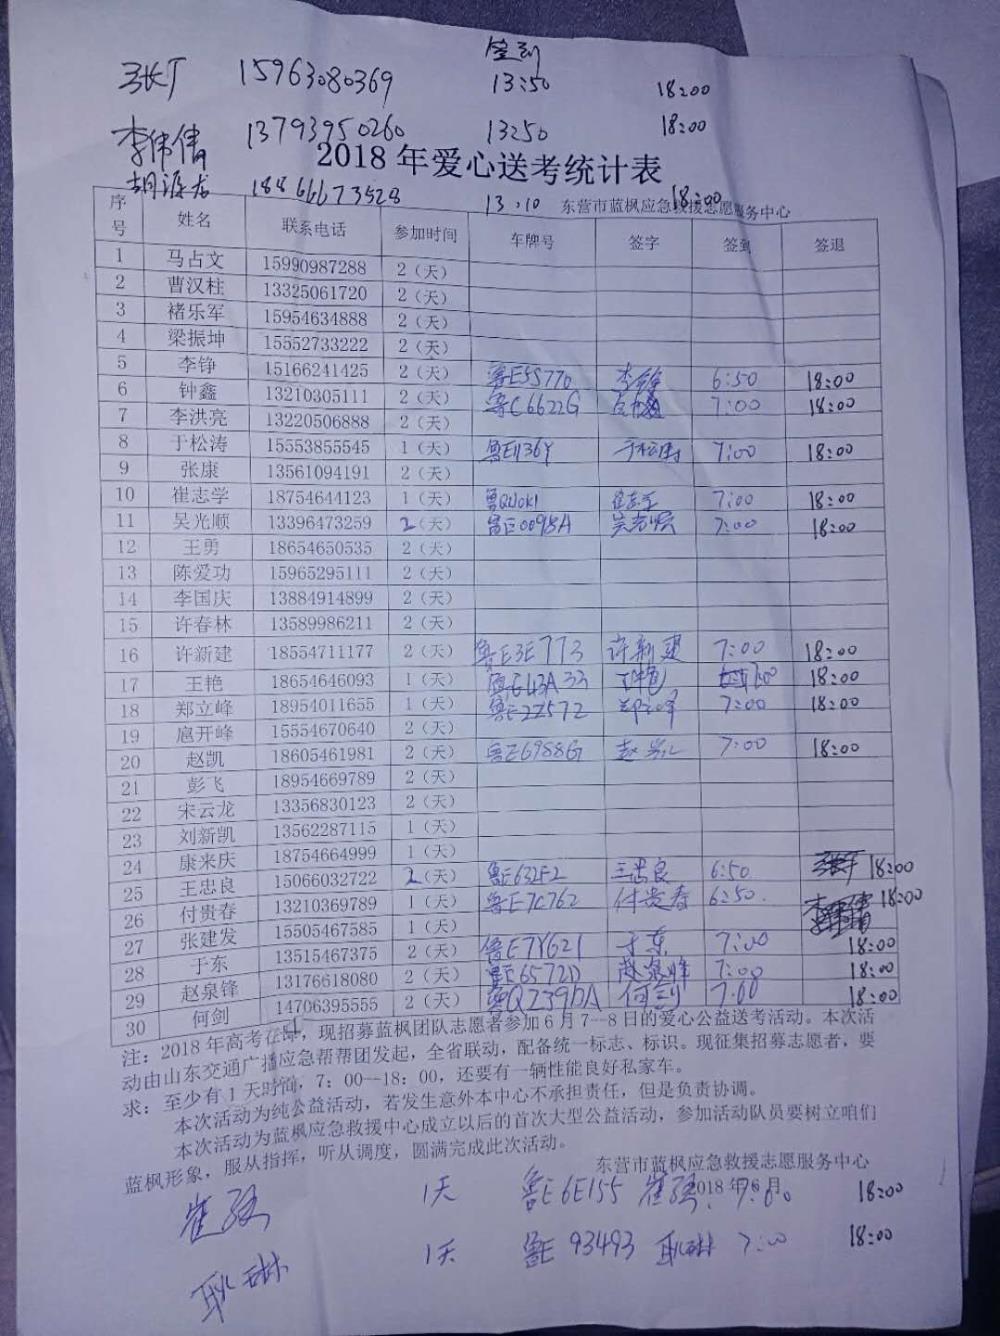 签到
张丁 15963080369 13:50 18:00
李伟倩 13793950260 13:50 18:00
2018年爱心送考统计表
胡源龙 18866673528 13:10 18:00
东营市蓝枫应急救援志愿服务中心
序号 姓名 联系电话 参加时间 车牌号 签字 签到 签退
1 马占文 15990987288 2（天）
2 曹汉柱 13325061720 2（天）
3 褚乐军 15954634888 2（天）
4 梁振坤 15552733222 2（天）
5 李铮 15166241425 2（天） 鲁E5S770 李铮 6:50 18:00
6 钟鑫 13210305111 2（天） 鲁C6622G 7:00 18:00
7 李洪亮 13220506888 2（天）
8 于松涛 15553855545 1（天） 鲁E1136Y 于松涛 7:00 18:00
9 张康 13561094191 2（天）
10 崔志学 18754644123 1（天） 崔志学 7:00 18:00
11 吴光顺 13396473259 2（天） 鲁E0098A 吴光顺 7:00 18:00
12 王勇 18654650535 2（天）
13 陈爱功 15965295111 2（天）
14 李国庆 13884914899 2（天）
15 许春林 13589986211 2（天）
16 许新建 18554711177 2（天） 鲁E3E773 许新建 7:00 18:00
17 王艳 18654646093 1（天） 鲁E43A33 王艳 18:00
18 郑立峰 18954011655 1（天） 鲁E2Z572 郑立峰 7:00 18:00
19 扈开峰 15554670640 2（天）
20 赵凯 18605461981 2（天） 鲁E6988G 赵凯 7:00 18:00
21 彭飞 18954669789 2（天）
22 宋云龙 13356830123 2（天）
23 刘新凯 13562287115 1（天）
24 康来庆 18754664999 1（天）
25 王忠良 15066032722 2（天） 鲁E632F2 王忠良 6:50 18:00
26 付贵春 13210369789 1（天） 鲁E7C762 付贵春 6:50 18:00
27 张建发 15505467585 1（天）
28 于东 13515467375 2（天） 鲁E7Y621 于东 7:00 18:00
29 赵泉锋 13176618080 2（天） 鲁E6572D 赵泉锋 7:00 18:00
30 何剑 14706395555 2（天） 鲁Q239DA 何剑 7:00 18:00
注：2018年高考在即，现招募蓝枫团队志愿者参加6月7—8日的爱心公益送考活动。本次活
动由山东交通广播应急帮帮团发起，全省联动，配备统一标志、标识。现征集招募志愿者，要
求：至少有1天时间，7：00—18：00，还要有一辆性能良好私家车。
本次活动为纯公益活动，若发生意外本中心不承担责任，但是负责协调。
本次活动为蓝枫应急救援中心成立以后的首次大型公益活动，参加活动队员要树立咱们
蓝枫形象，服从指挥，听从调度，圆满完成此次活动。
东营市蓝枫应急救援志愿服务中心
2018年6月
崔强 1天 鲁E6E155 崔强 7:00 18:00
耿琳 1天 鲁E 93493 耿琳 7:00 18:00